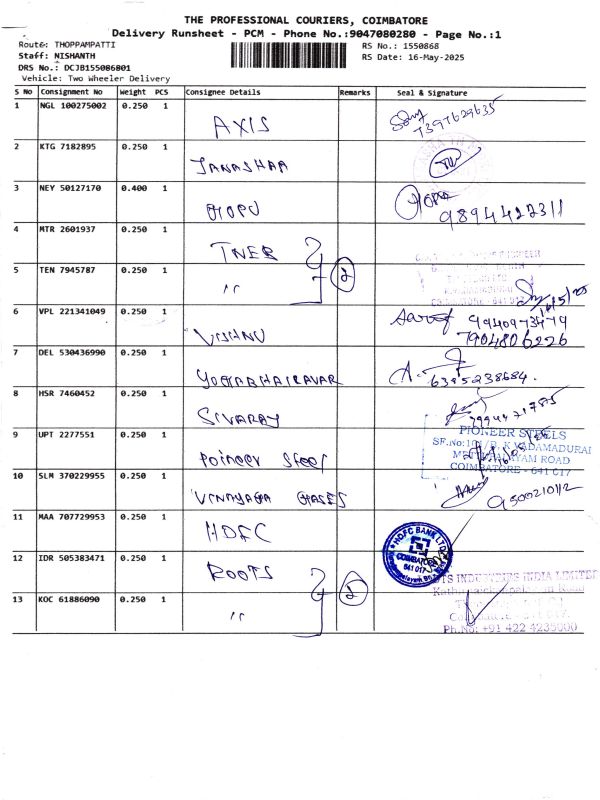 THE PROFESSIONAL COURIERS, COIMBATORE
Delivery Runsheet - PCM - Phone No.:9047080280 - Page No.:1
Route: THOPPAMPATTI RS No.: 1550868
Staff: NISHANTH RS Date: 16-May-2025
DRS No.: DCJB155086801
Vehicle: Two Wheeler Delivery
S No Consignment No Weight PCS Consignee Details Remarks Seal & Signature
1 NGL 100275002 0.250 1 AXIS 7397629635
2 KTG 7182895 0.250 1
3 NEY 50127170 0.400 1 GOPU 9894427311
4 MTR 2601937 0.250 1 TNEB
5 TEN 7945787 0.250 1 " 2
COIMBATORE - 641 017 16/5/25
6 VPL 221341049 0.250 1 VISHNU 9940973479
7904806226
7 DEL 530436990 0.250 1 YOGABHAIRAVAR 6385238684.
8 HSR 7460452 0.250 1 SIVARAJ
9 UPT 2277551 0.250 1 Poineer Steel PIONEER STEELS
METTUPALAYAM ROAD
COIMBATORE - 641 017
10 SLM 370229955 0.250 1 VINAYAGA GASES
11 MAA 707729953 0.250 1 HDFC HDFC BANK LTD
COIMBATORE
641 017
12 IDR 505383471 0.250 1 ROOTS
INDUSTRIES INDIA LIMITED
13 KOC 61886090 0.250 1 " 2
Ph.No: +91 422 4235000